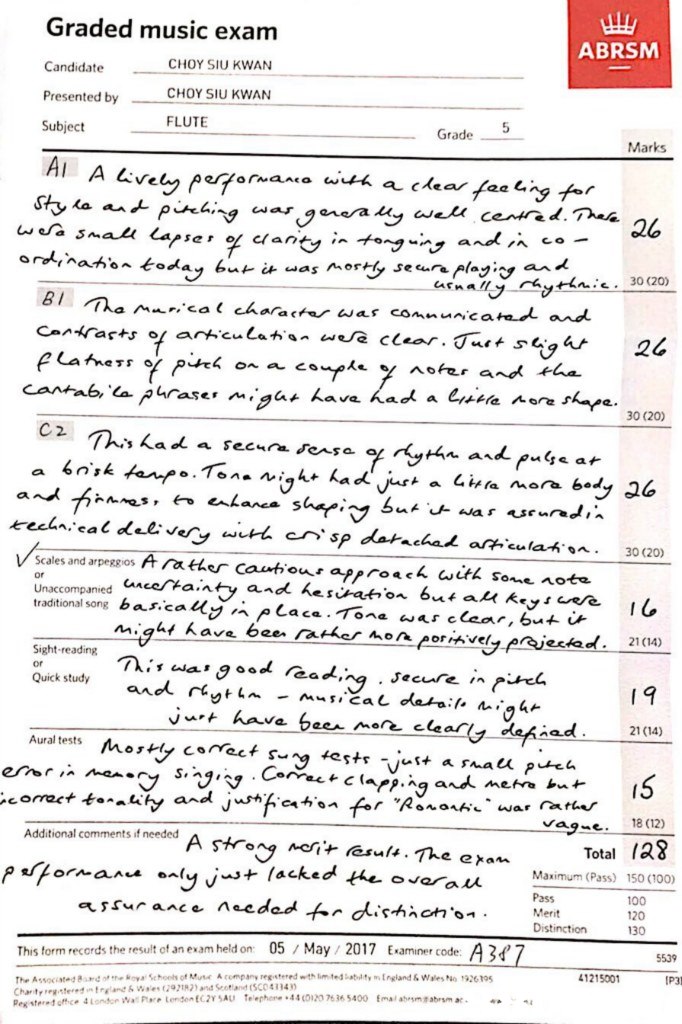 Graded music exam
ABRSM
Candidate CHOY SIU KWAN
Presented by CHOY SIU KWAN
Subject FLUTE Grade 5
Marks
A1 A lively performance with a clear feeling for
style and pitching was generally well centred. There
were small lapses of clarity in tonguing and in co-
ordination today but it was mostly secure playing and
usually rhythmic.
26
30 (20)
B1 The musical character was communicated and
contrasts of articulation were clear. Just slight
flatness of pitch on a couple of notes and the
cantabile phrases might have had a little more shape.
26
30 (20)
C2 This had a secure sense of rhythm and pulse at
a brisk tempo. Tone might had just a little more body
and firmness to enhance shaping but it was assured in
technical delivery with crisp detached articulation.
26
30 (20)
✓ Scales and arpeggios
or
Unaccompanied
traditional song
A rather cautious approach with some note
uncertainty and hesitation but all keys were
basically in place. Tone was clear, but it
might have been rather more positively projected.
16
21 (14)
Sight-reading
or
Quick study
This was good reading, secure in pitch
and rhythm - musical details might
just have been more clearly defined.
19
21 (14)
Aural tests Mostly correct sung tests - just a small pitch
error in memory singing. Correct clapping and metre but
incorrect tonality and justification for "Romantic" was rather
vague.
15
18 (12)
Additional comments if needed A strong merit result. The exam
performance only just lacked the overall
assurance needed for distinction.
Total 128
Maximum (Pass) 150 (100)
Pass 100
Merit 120
Distinction 130
This form records the result of an exam held on: 05 / May / 2017 Examiner code: A387
5539
The Associated Board of the Royal Schools of Music. A company registered with limited liability in England & Wales No. 1926395
Charity registered in England & Wales (292182) and Scotland (SC043343)
Registered office: 4 London Wall Place London EC2Y 5AU Telephone +44 (0)20 7636 5400 Email abrsm@abrsm.ac.
41215001 [P3]